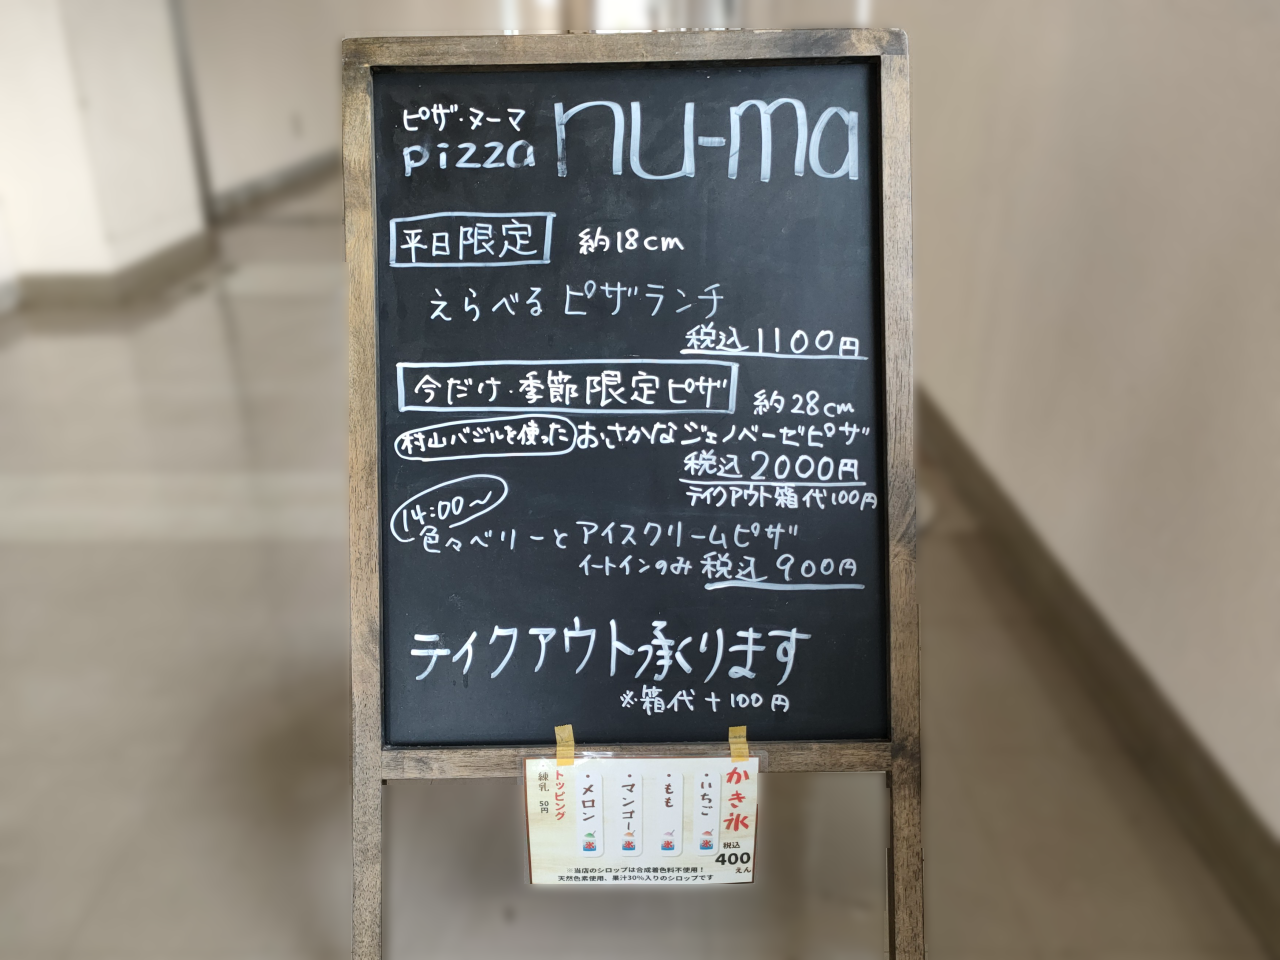 ピザ・ヌーマ
pizza nu-ma
平日限定 約18cm
えらべるピザランチ
税込1100円
今だけ・季節限定ピザ 約28cm
村山バジルを使った おさかなジェノベーゼピザ
税込2000円
テイクアウト箱代100円
14:00〜
色々ベリーとアイスクリームピザ
イートインのみ 税込900円
テイクアウト承ります
※箱代+100円
かき氷
税込
400
えん
・いちご
・もも
・マンゴー
・メロン
トッピング
練乳 50円
※当店のシロップは合成着色料不使用!
天然色素使用、果汁30%入りのシロップです